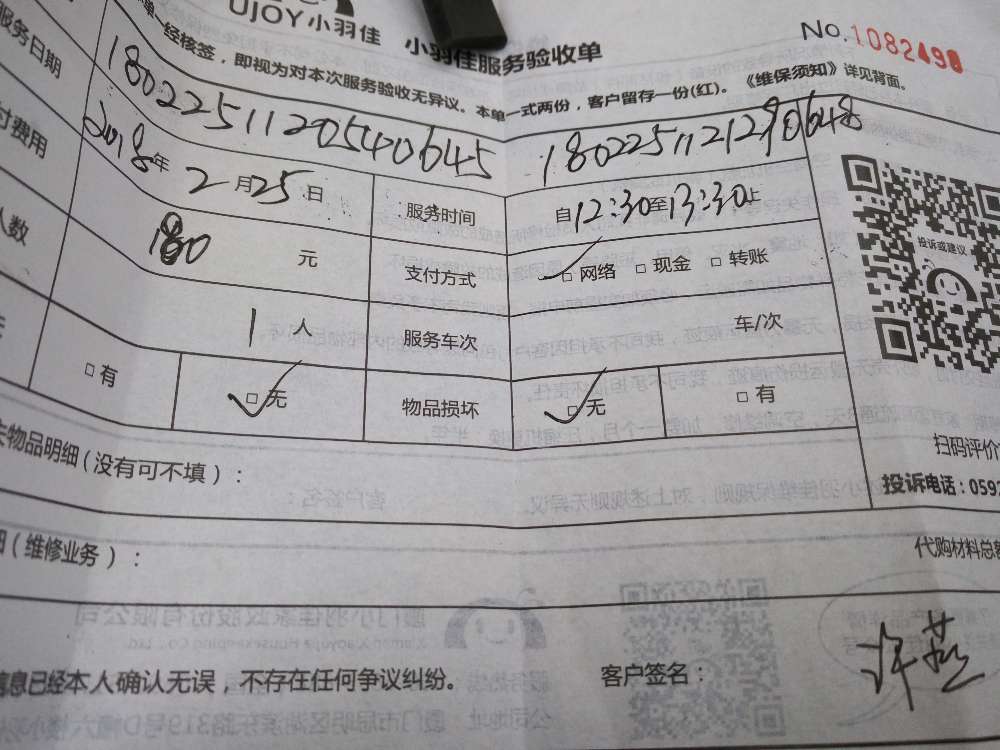 UJOY小羽佳 小羽佳服务验收单
No.1082498
单一经核签，即视为对本次服务验收无异议。本单一式两份，客户留存一份(红)。《维保须知》详见背面。
1802251120540645 18022511212190648
服务日期 2018年2月25日 服务时间 自12:30至13:30止
付费用 180 元 支付方式 □网络 □现金 □转账
人数 1人 服务车次 车/次
□有 □无 物品损坏 □无 □有
投诉或建议
扫码评价
物品明细(没有可不填)：
投诉电话:0592
(维修业务)：
代购材料总
信息已经本人确认无误，不存在任何争议纠纷。 客户签名：